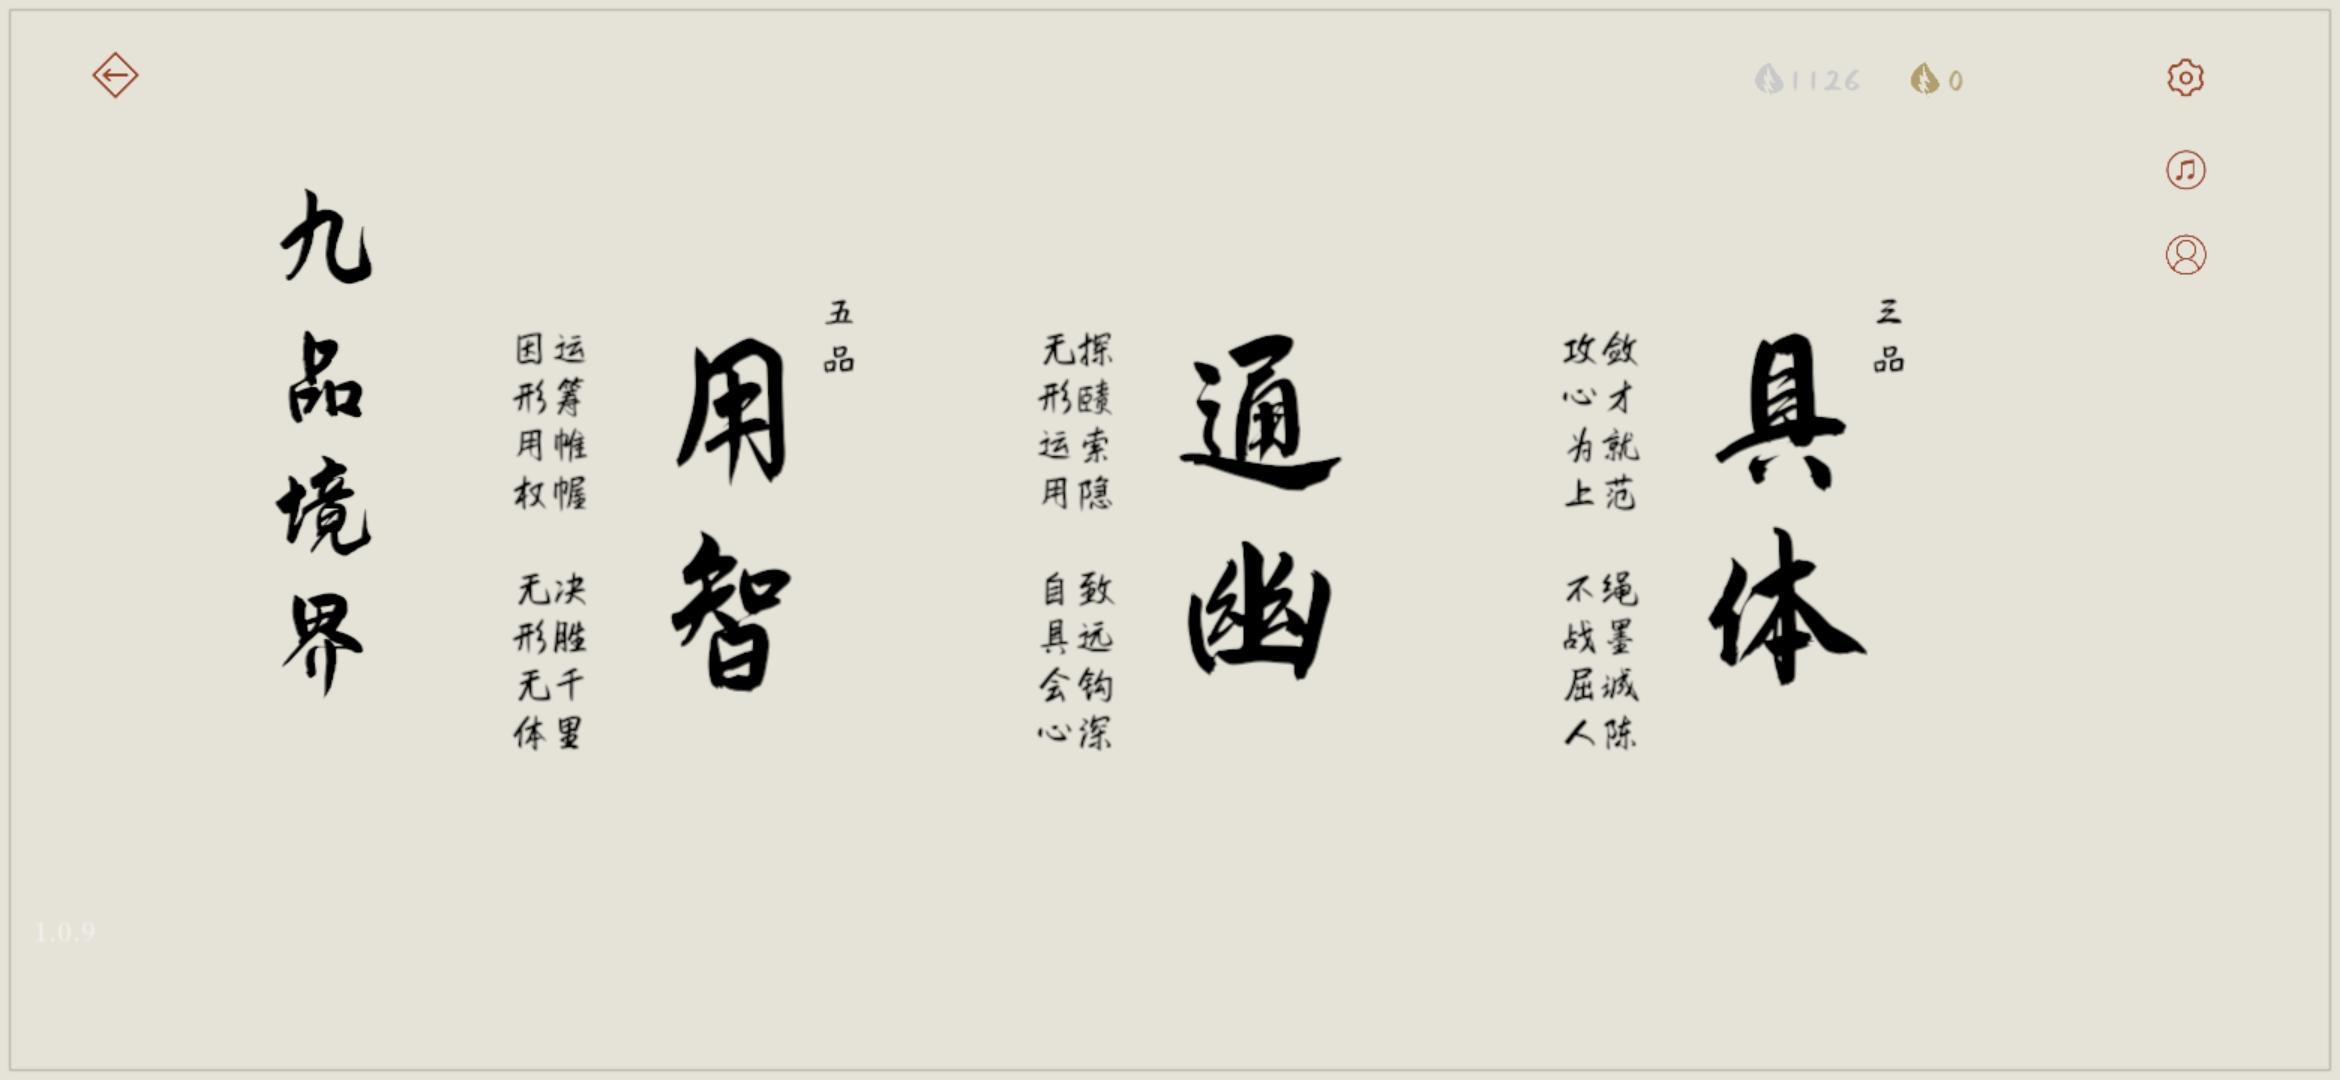 1126
0
九品境界
三品
具体
敛才就范 绳墨诚陈
攻心为上 不战屈人
通幽
探赜索隐 致远钩深
无形运用 自具会心
五品
用智
运筹帷幄 决胜千里
因形用权 无形无体
1.0.9